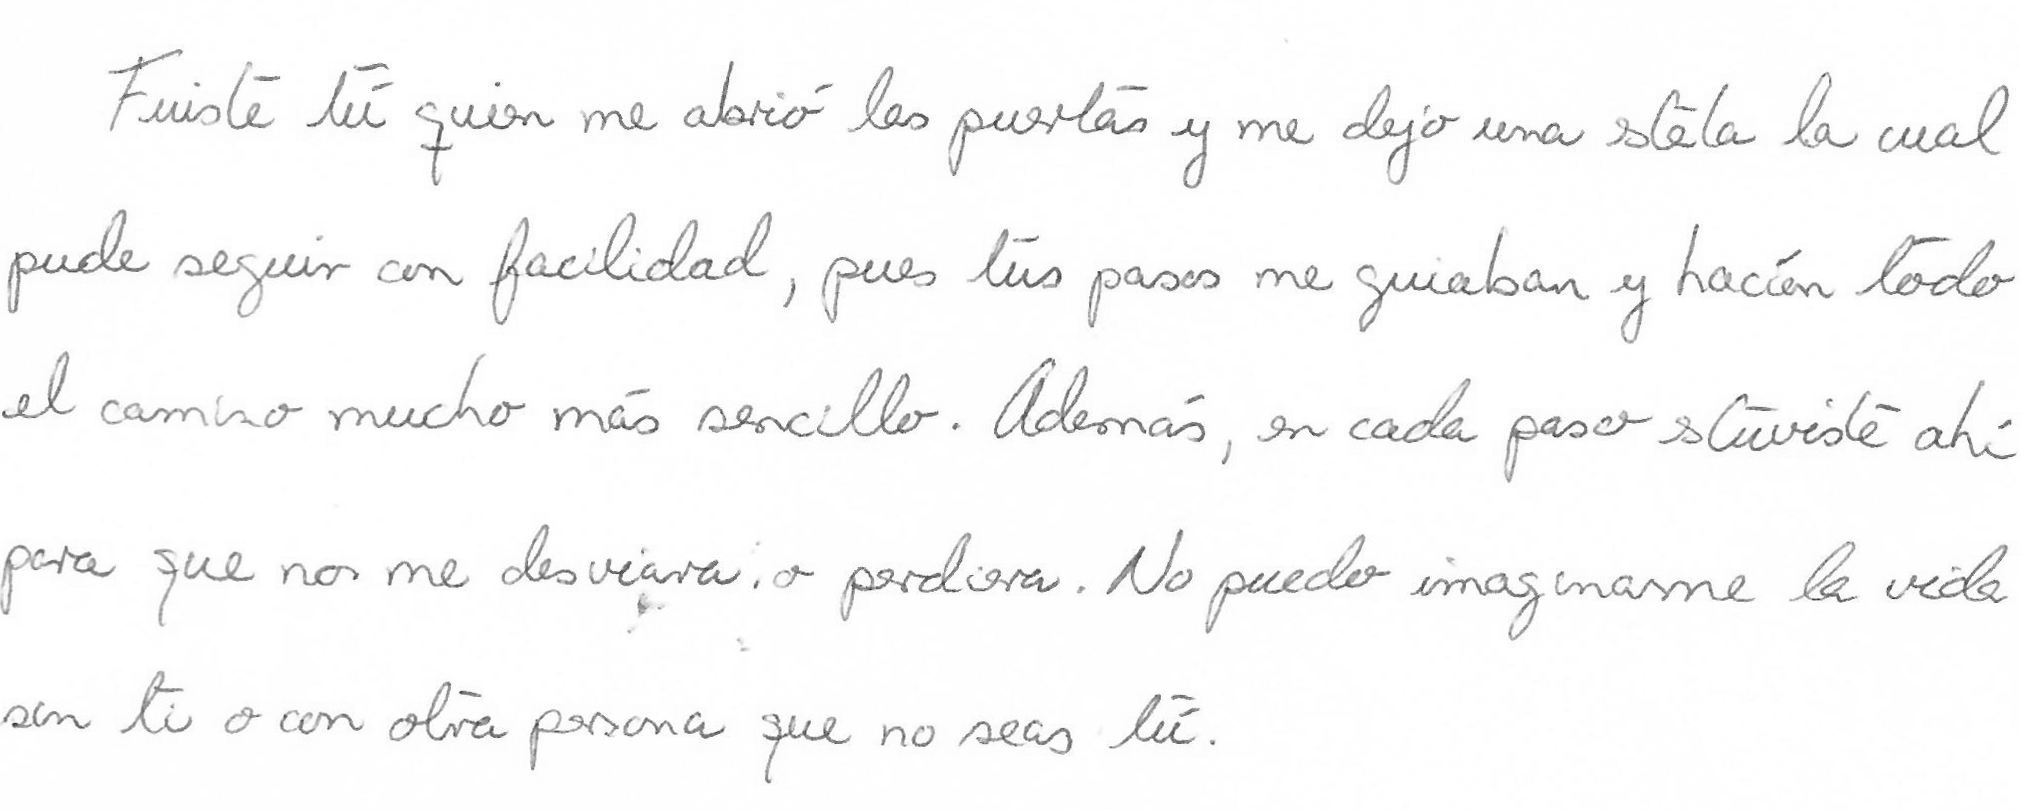 Fuiste tú quien me abrió las puertas y me dejo una steta la cual
pude seguir con facilidad, pues tus pasos me guiaban y hacían todo
el camino mucho más sencillo. Además, en cada paso stuviste ahí
para que no me desviara o perdiera. No puedo imaginarme la vida
sin ti o con otra persona que no seas tú.